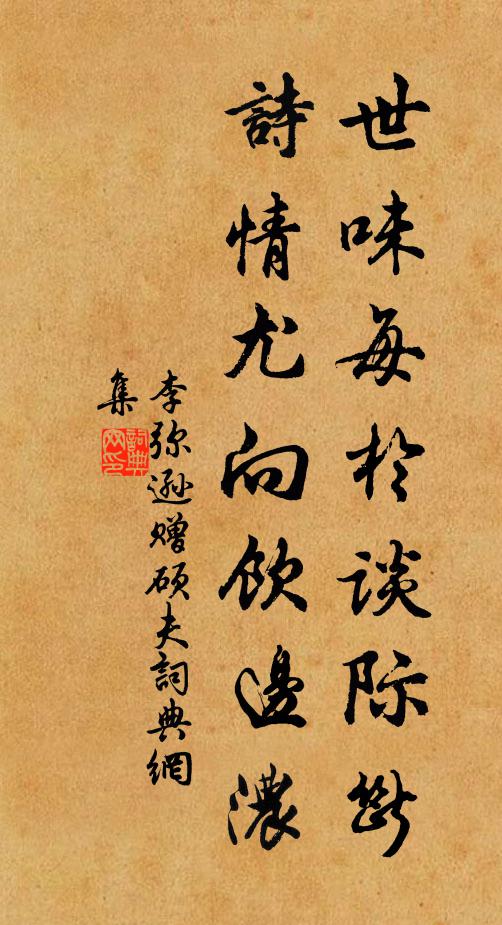 世味每於谈际断
詩情尤向飲邊濃
李弥逊赠硕夫詞典網
集
詞典網印